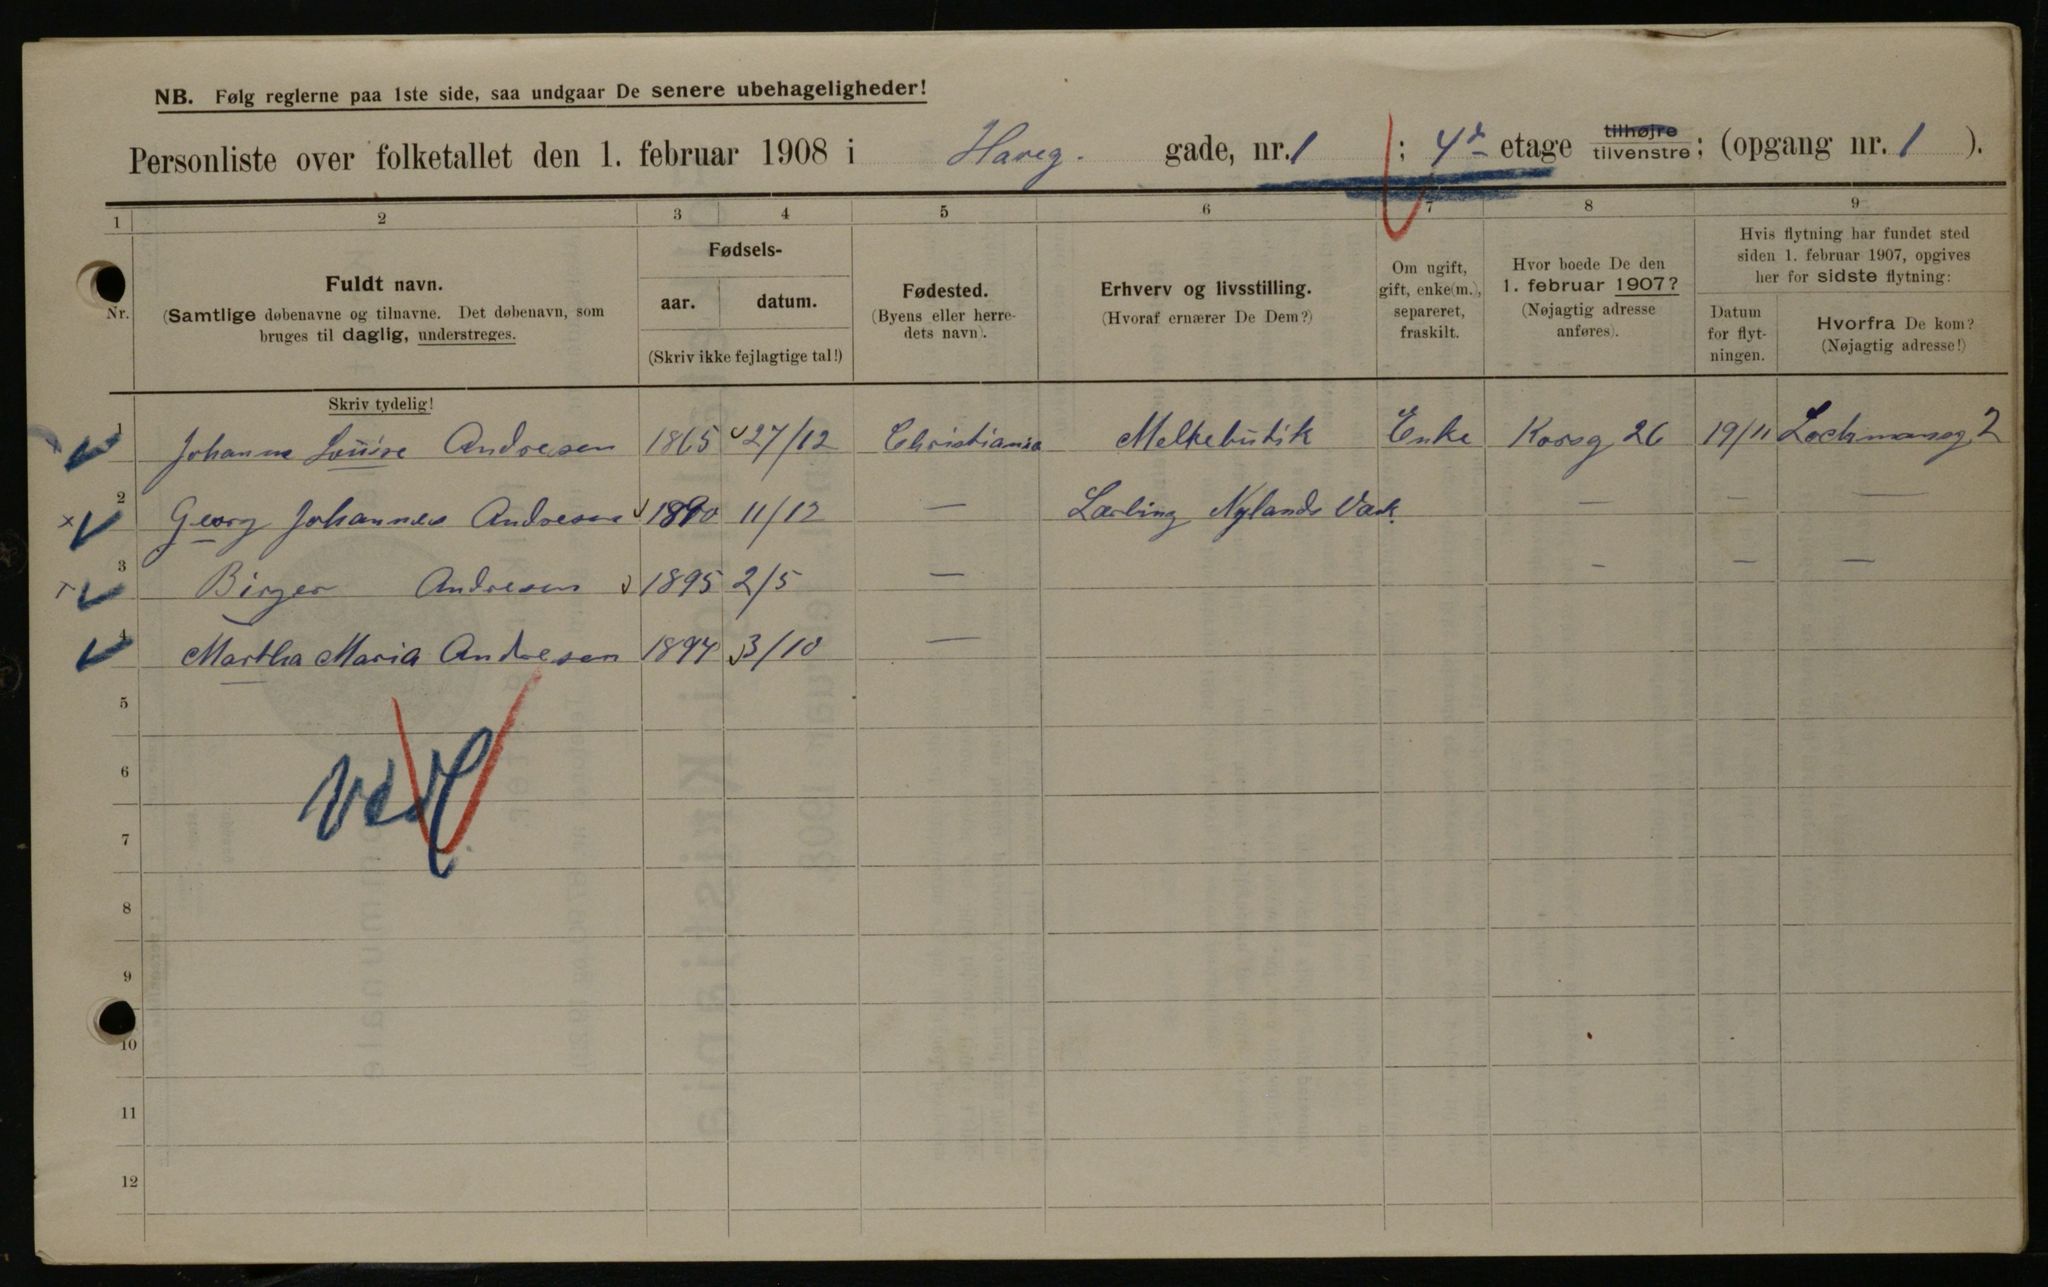 NB. Følg reglerne paa 1ste side, saa undgaar De senere ubehageligheder!
Personliste over folketallet den 1. februar 1908 i Haveg. gade, nr. 1 ; 4de etage tilhøjre tilvenstre; (opgang nr. 1 ).
1 2 3 4 5 6 7 8 9
Nr.
Fuldt navn.
(Samtlige døbenavne og tilnavne. Det døbenavn, som
bruges til daglig, understreges.
Fødsels-
aar. datum.
(Skriv ikke fejlagtige tal!)
Fødested.
(Byens eller herre-
dets navn).
Erhverv og livsstilling.
(Hvoraf ernærer De Dem?)
Om ugift,
gift, enke(m.),
separeret,
fraskilt.
Hvor boede De den
1. februar 1907?
(Nøjagtig adresse
anføres).
Hvis flytning har fundet sted
siden 1. februar 1907, opgives
her for sidste flytning:
Datum
for flyt-
ningen.
Hvorfra De kom?
(Nøjagtig adresse!)
Skriv tydelig!
1 Johanne Louise Andresen 1865 27/12 Christiania Melkebutik Enke Korsg 26 19/11 Lochmansg 2
2 Georg Johannes Andresen 1890 11/12 — Lærling Nylands Værk. — — —
3 Birger Andresen 1895 2/5 — — — —
4 Martha Maria Andresen 1897 3/10 —
5
6
7
8
9
10
11
12